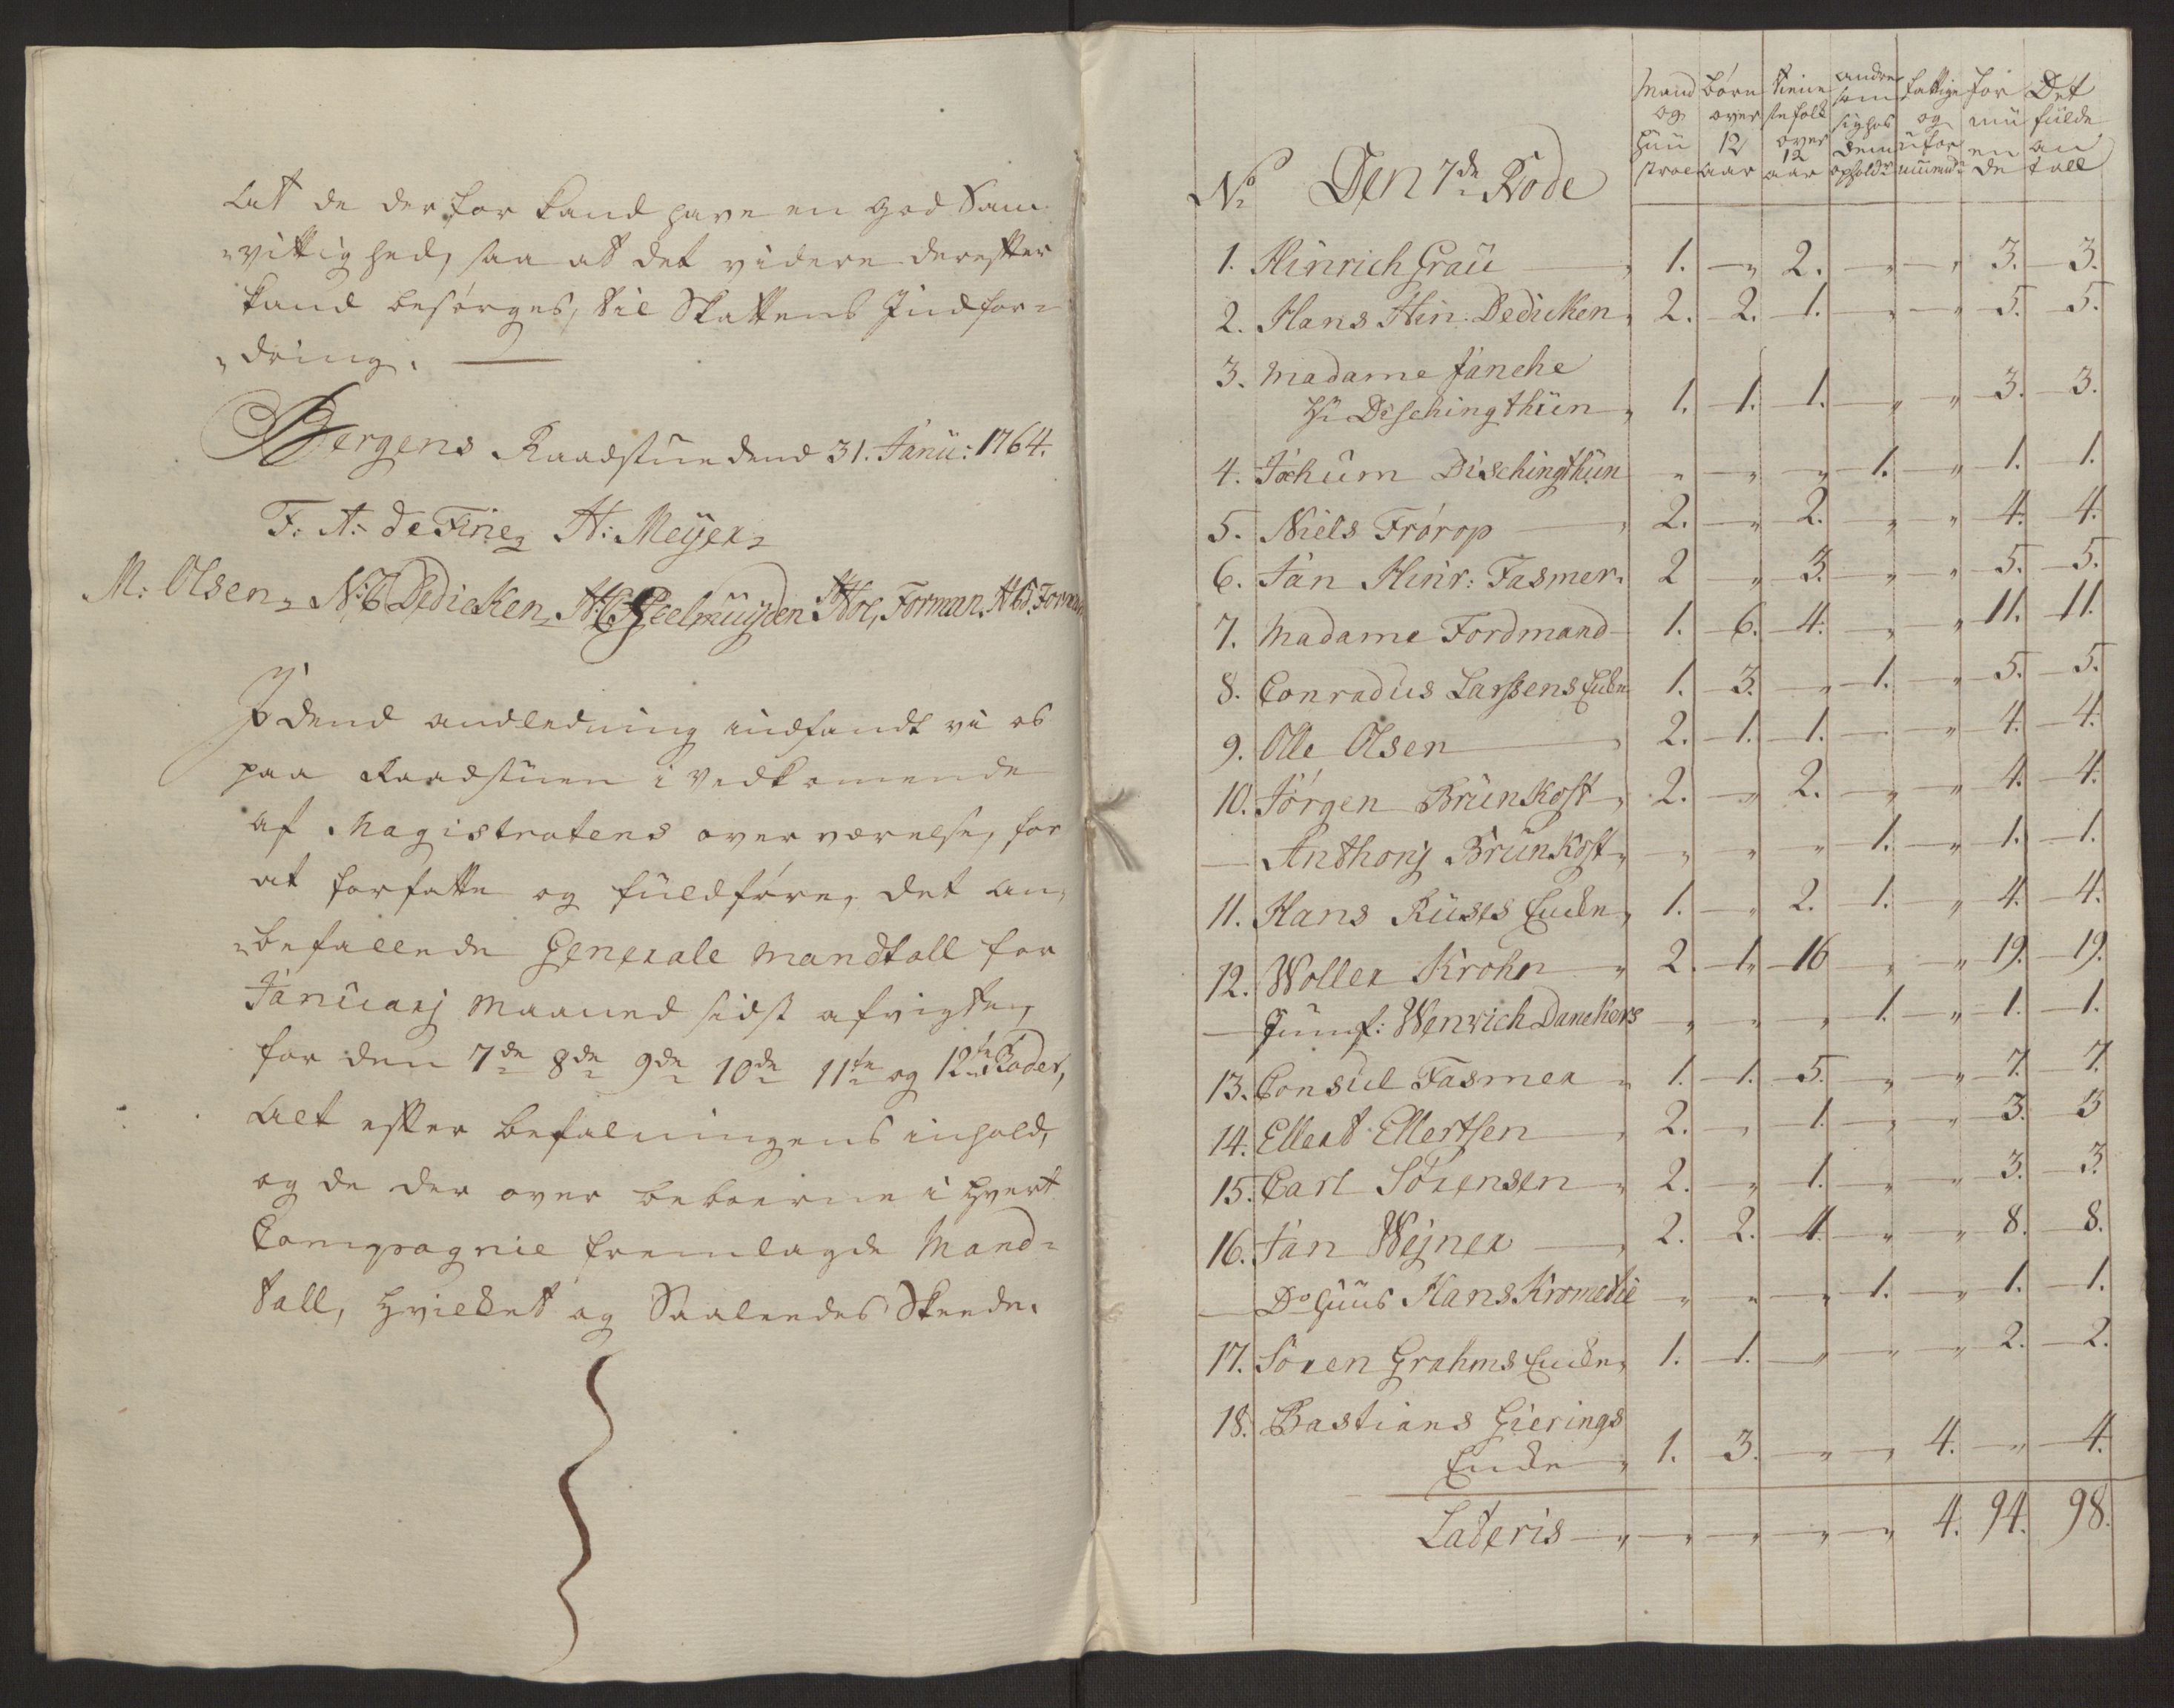 at de derfor kand have en god Sam-
vittighed, saa at det videre derefter
kand besørges, til Skattens Indfor-
dring.
Bergens Raadstue dend 31. Janu: 1764.
F. A: de Fine, H: Meyer,
M: Olsen, Dedicken, Geelmuyden Forman.
I dend andledning indfandt vi os
paa Raadstuen i vedkomende
af Magistratens overværelse, for
at forfatte og fuldføre, det an-
befallende Generale mandtall for
Januarj Maaned sidst afvigte,
for den 7de 8de 9de 10de 11te og 12te Roder,
alt efter befalningens inhold,
og de der over beboerne i hvert
Compagnie fremlagde Mand-
tall, hvilket og Saaleedes Skeede.
No Den 7de Rode
Mand og Hustroe
børn over 12 aar
tienestefolk over 12 aar
andre som sig hos dem opholdr
fattige og uformuend
formuende
Det fulde antall
1. Hinrich Grau 1. " 2. " " 3. 3.
2. Hans Hin: Dedicken 2. 2. 1. " " 5. 5.
3. Madame Janche
Hr Dischingthun 1. 1. 1. " " 3. 3.
4. Jochum Dischingthun " " " 1. " 1. 1.
5. Niels Frørop 2. " 2. " " 4. 4.
6. Jan Hinr: Fasmer 2 " 3. " " 5. 5.
7. Madame Fordmand 1. 6. 4. " " 11. 11.
8. Conradus Larssens Enke 1. 3. " 1. " 5. 5.
9. Olle Olsen 2. 1. 1. " " 4. 4.
10. Jørgen Brunkost 2. " 2. " " 4. 4.
— Anthonj Brunkost " " " 1. " 1. 1.
11. Hans Ruses Encke 1. " 2. 1. " 4. 4.
12. Woller Krohn 2. 1. 16 " " 19. 19.
— Jumf: Wenrich Danckers " " " 1. " 1. 1.
13. Consul Fasmer 1. 1. 5. " " 7. 7.
14. Ellert Ellertsen 2. " 1. " " 3. 3
15. Carl Sørensen 2. " 1. " " 3. 3.
16. Jan Wejner 2. 2. 4. " " 8. 8.
— Do Huus Hans Krometie " " " 1. " 1. 1.
17. Søren Grahms Encke 1. 1. " " " 2. 2.
18. Bastians Gierings
Encke 1. 3. " " 4. " 4.
Lateris " " " " 4. 94. 98.